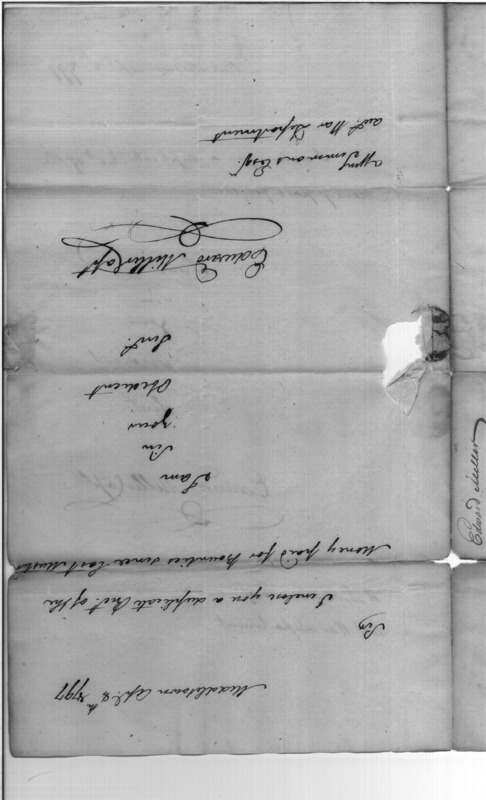 Middletown Apl. 8th 1797
Sir
I inclose you a duplicate Rect. of the
Money paid for Bounties since last Muster
I am
Sir
your
Obedient
Servt.
Edward Miller Capt
Simmons Esqr.
act. War Department
Edward Miller